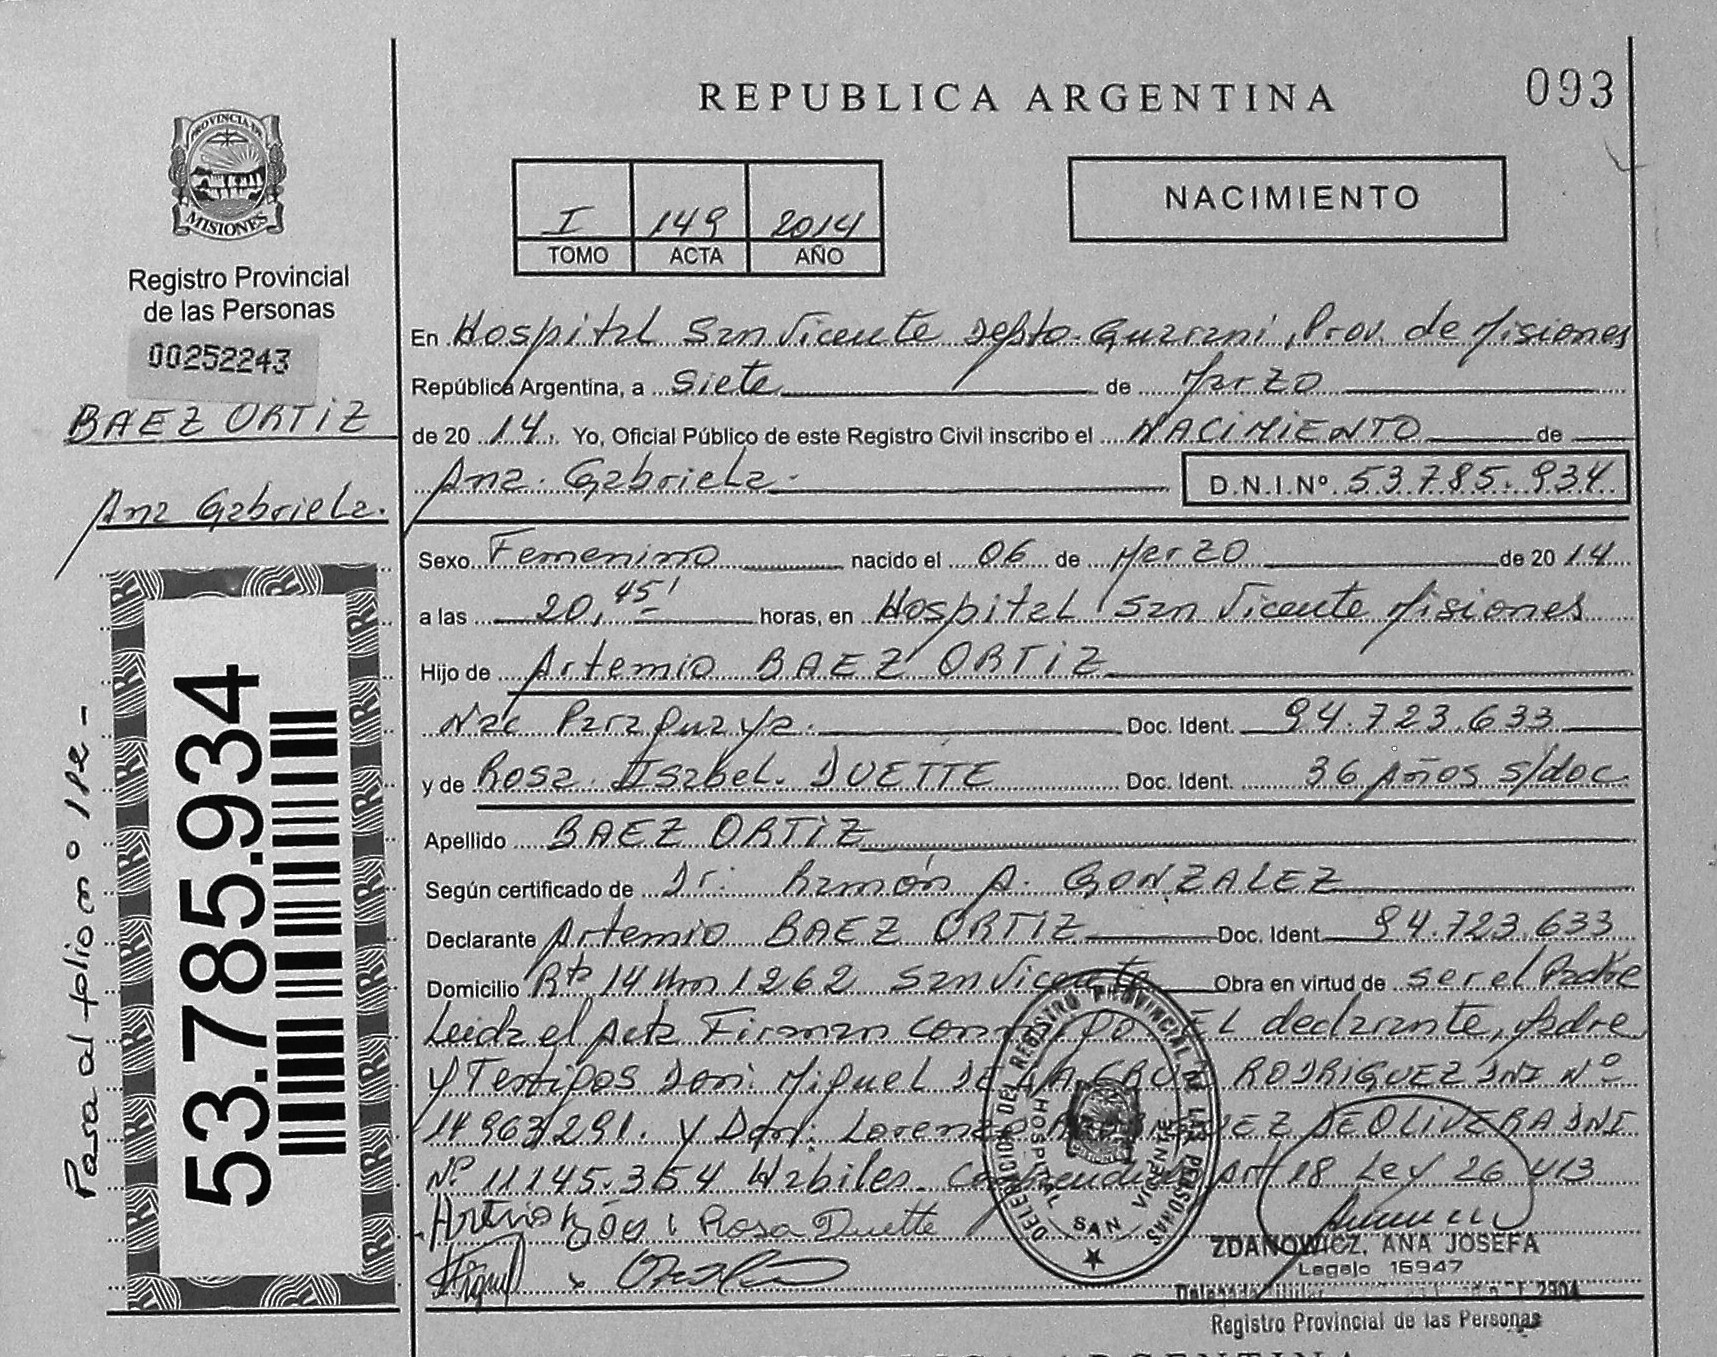 REPUBLICA ARGENTINA
093
PROVINCIA DE
MISIONES
Registro Provincial
de las Personas
00252243
BAEZ ORTIZ
Ana Gabriela.
53.785.934
Pasa al folio nº
I 149 2014
TOMO ACTA AÑO
NACIMIENTO
En Hospital San Vicente Depto. Guarani, Prov. de Misiones
República Argentina, a Siete de Marzo
de 20 14. Yo, Oficial Público de este Registro Civil inscribo el NACIMIENTO de
Ana Gabriela. D.N.I.Nº 53.785.934
Sexo Femenino nacido el 06 de Marzo de 20 14
a las 20,45' horas, en Hospital San Vicente Misiones
Hijo de Artemio BAEZ ORTIZ
Nac Paraguaya. Doc. Ident. 94.723.633
y de Rosa Isabel. DUETTE Doc. Ident. 36 Años s/doc.
Apellido BAEZ ORTIZ
Según certificado de Dr. Ramón A. GONZALEZ
Declarante Artemio BAEZ ORTIZ Doc. Ident 94.723.633
Domicilio Rta 14 Km 1262 San Vicente Obra en virtud de ser el Padre
Leida el Acta Firman conmigo EL declarante, Madre
y Testigos Don: Miguel DE LA CRUZ RODRIGUEZ DNI Nº
14963291. y Don: Lorenzo DEOLIVERA DNI
Nº 11145.354 Habiles. Comprendido Art 18 Ley 26413
Rosa Duette
Miguel
DELEGACION DEL REGISTRO PROVINCIAL DE LAS PERSONAS
HOSPITAL SAN VICENTE
ZDANOWICZ, ANA JOSEFA
Legajo 16947
Registro Provincial de las Personas
REPUBLICA ARGENTINA